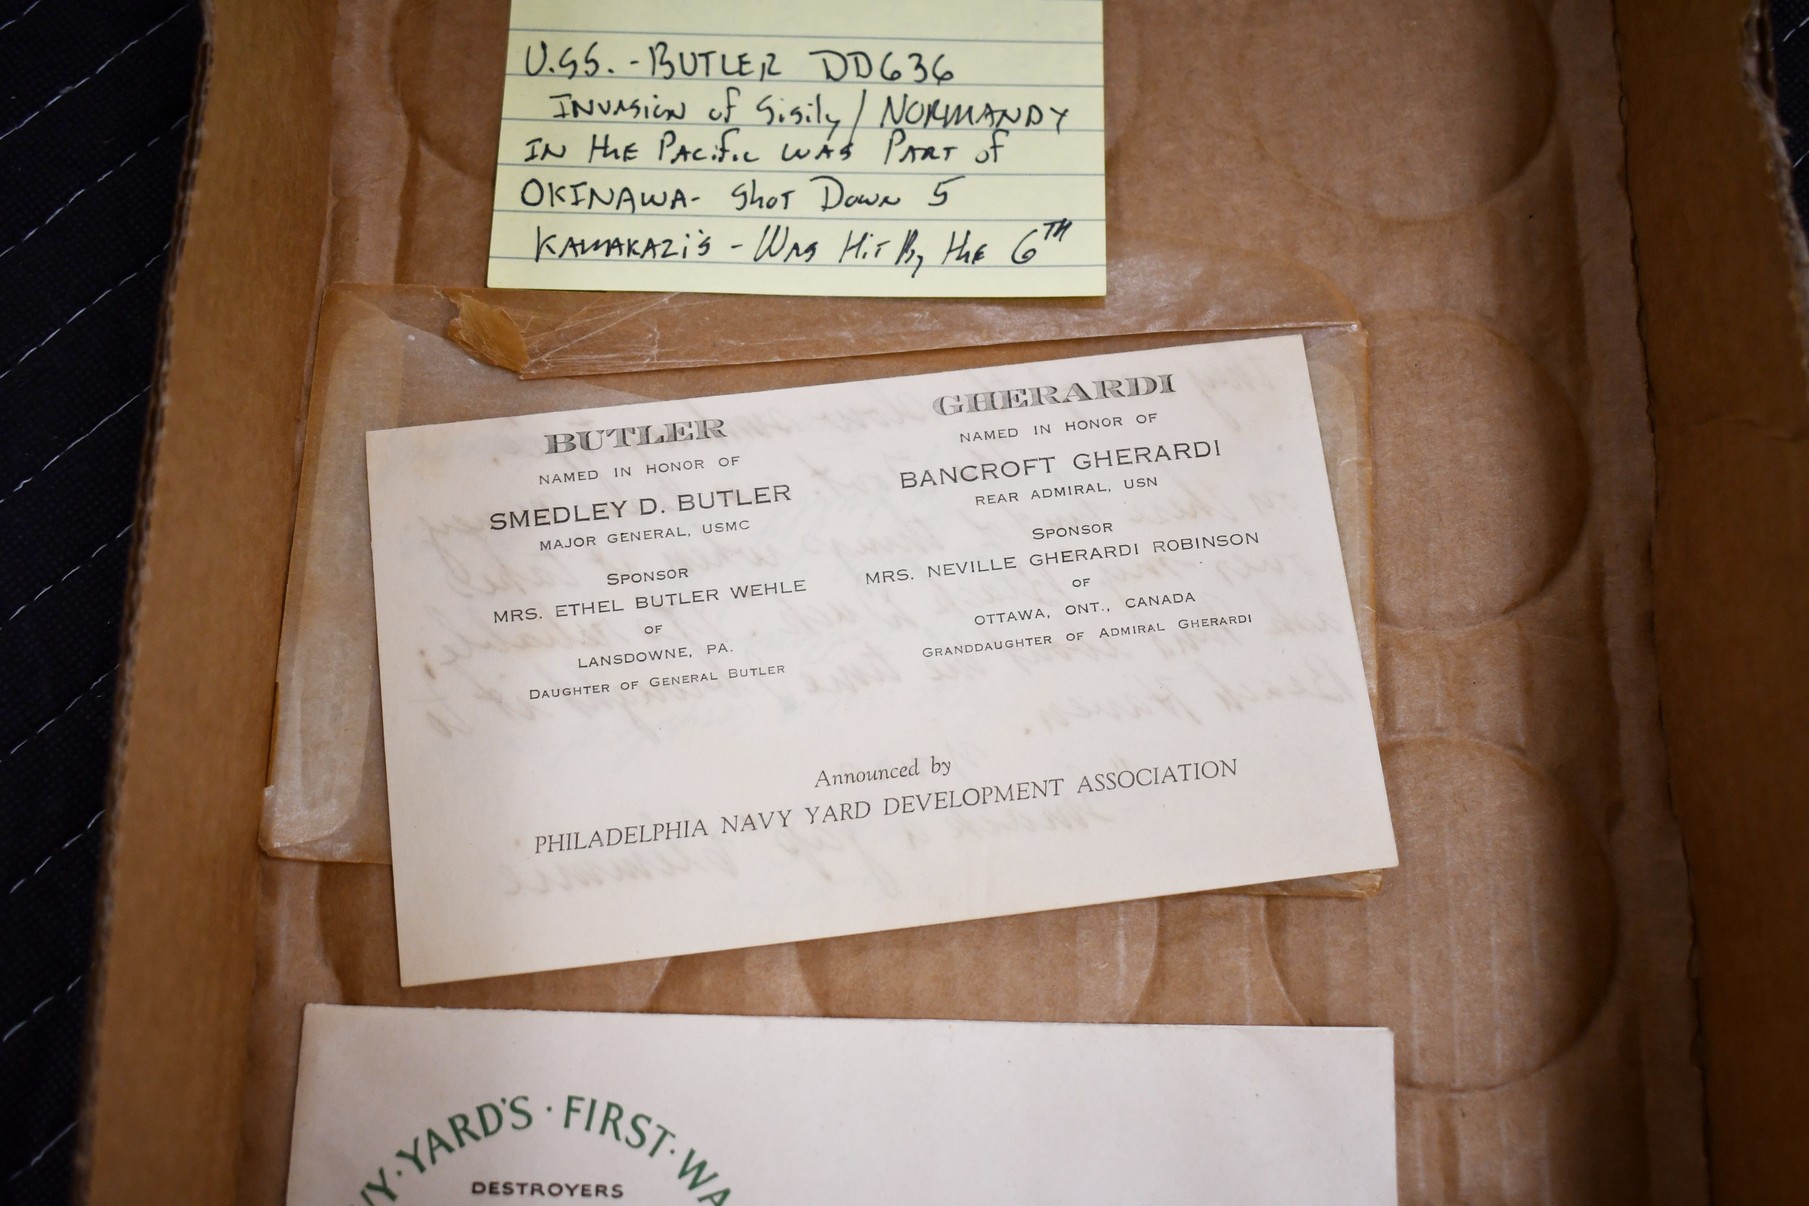 U.S.S. - BUTLER DD636
INVASION of Sisily / NORMANDY
IN the PACific WAS PART of
OKINAWA - Shot Down 5
KAMAKAZi's - WAS HiT By the 6TH
BUTLER
NAMED IN HONOR OF
SMEDLEY D. BUTLER
MAJOR GENERAL, USMC
SPONSOR
MRS. ETHEL BUTLER WEHLE
OF
LANSDOWNE, PA.
DAUGHTER OF GENERAL BUTLER
GHERARDI
NAMED IN HONOR OF
BANCROFT GHERARDI
REAR ADMIRAL, USN
SPONSOR
MRS. NEVILLE GHERARDI ROBINSON
OF
OTTAWA, ONT., CANADA
GRANDDAUGHTER OF ADMIRAL GHERARDI
Announced by
PHILADELPHIA NAVY YARD DEVELOPMENT ASSOCIATION
VY · YARD'S · FIRST · WA
DESTROYERS